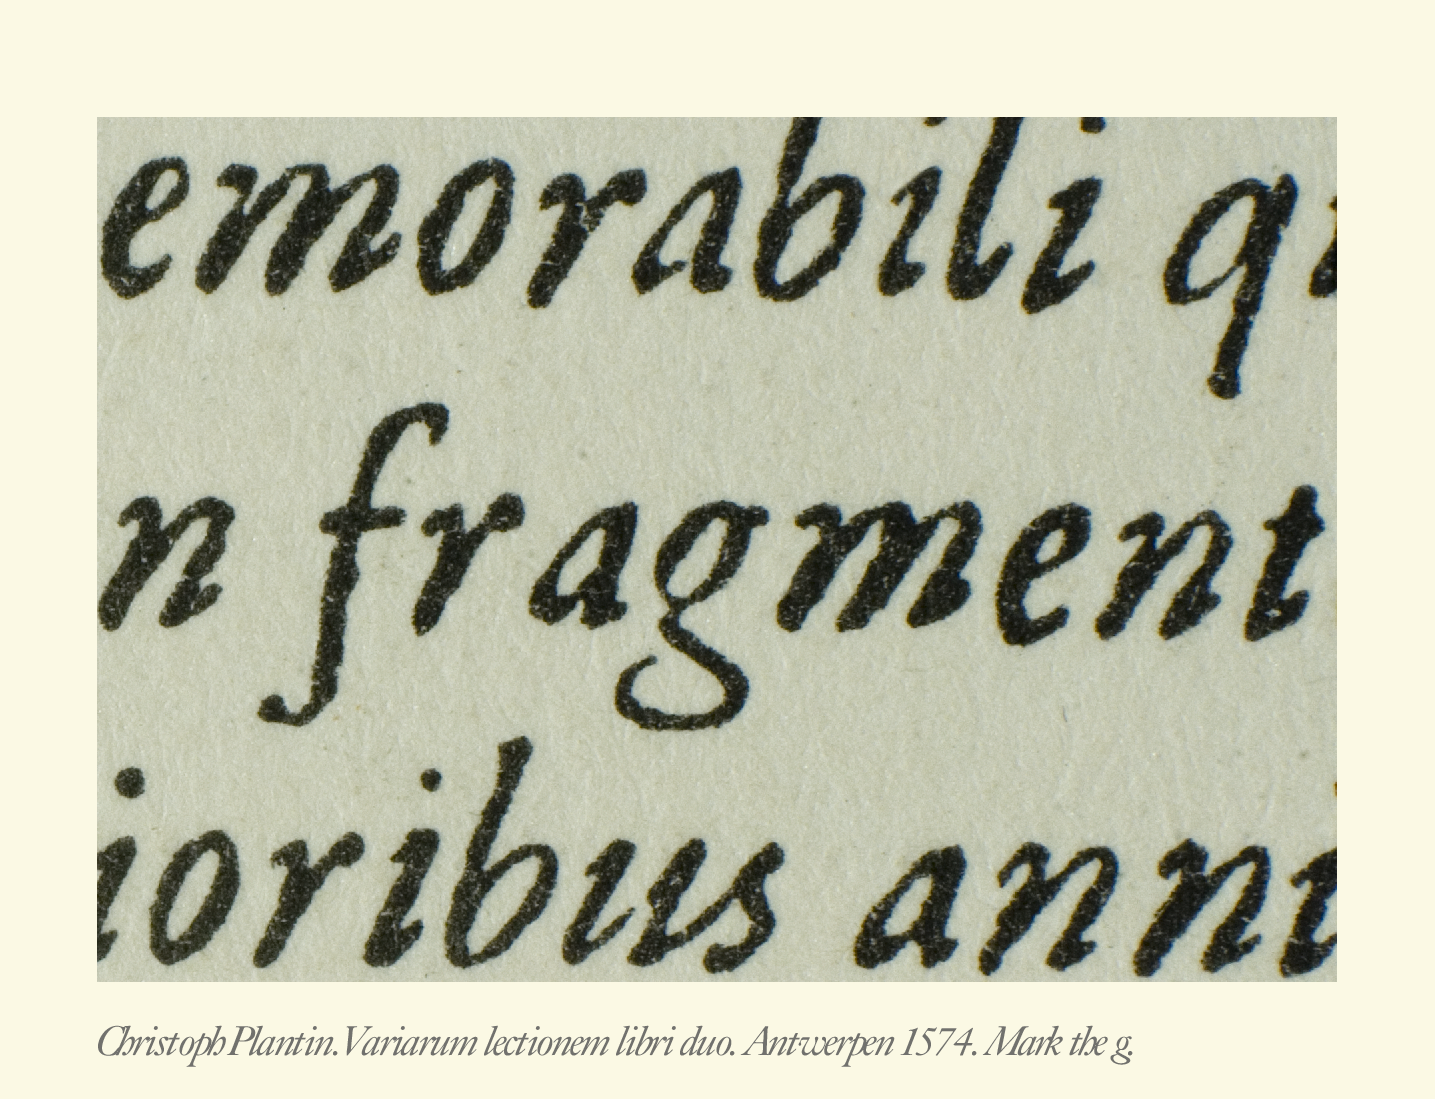 emorabili q
n fragment
ioribus ann
Christoph Plantin. Variarum lectionem libri duo. Antwerpen 1574. Mark the g.